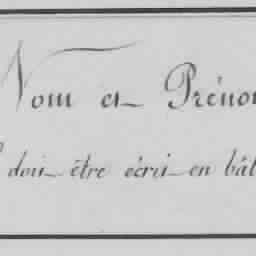 Nom et Prénom
doit être écrit en bât